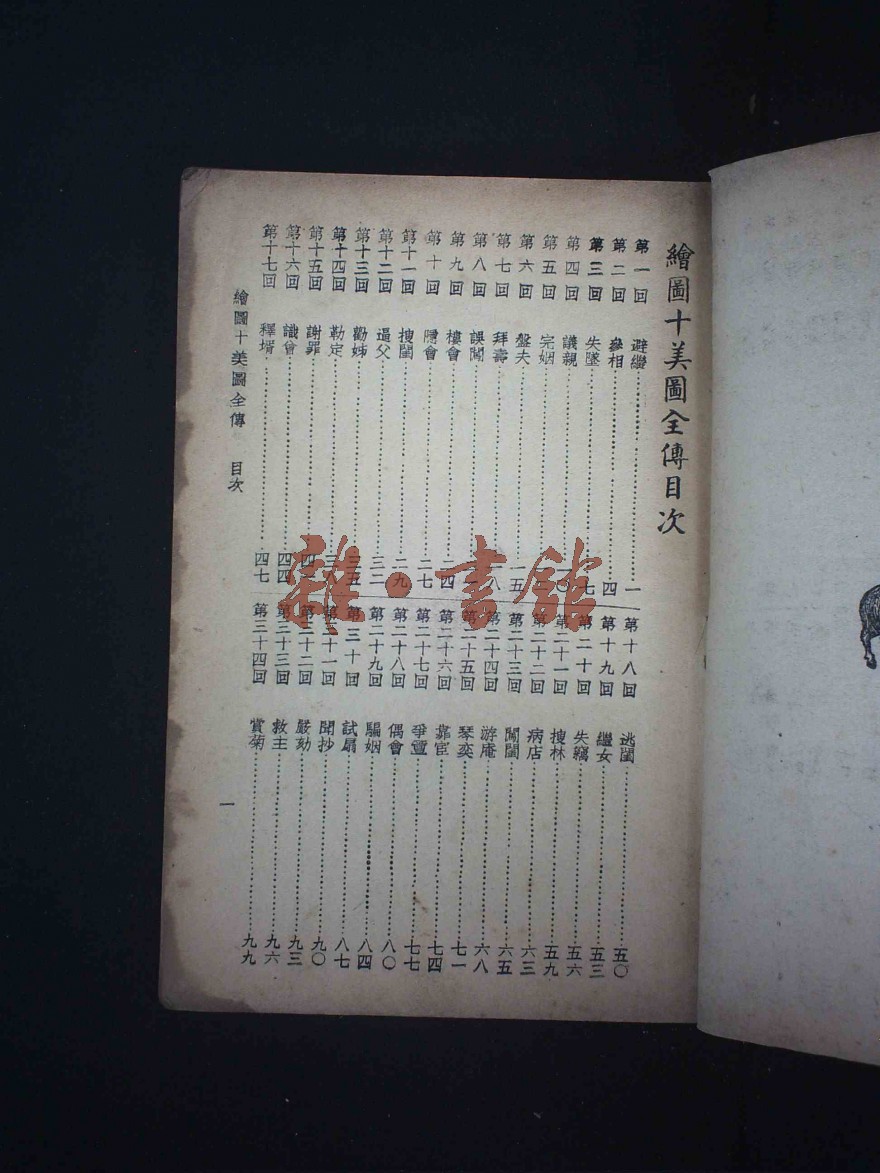 繪圖十美圖全傳目次
第一回 避繼 一
第二回 參相 四
第三回 失墜 七
第四回 議親
第五回 完姻
第六回 盤夫 一五
第七回 拜壽 八
第八回 誤闖
第九回 樓會 二四
第十回 會 二七
第十一回 搜閨 二九
第十二回 逼父 三二
第十三回 勸姊 三五
第十四回 勒定 三八
第十五回 謝罪 四一
第十六回 識會 四四
第十七回 釋壻 四七
第十八回 逃閨 五〇
第十九回 繼女 五三
第二十回 失竊 五六
第二十一回 搜林 五九
第二十二回 病店 六三
第二十三回 鬧閨 六五
第二十四回 游庵 六八
第二十五回 琴奕 七一
第二十六回 靠官 七四
第二十七回 爭 七七
第二十八回 偶會 八〇
第二十九回 騙姻 八四
第三十回 試扇 八七
第三十一回 聞抄 九〇
第三十二回 嚴劾 九三
第三十三回 救主 九六
第三十四回 賞菊 九九
繪圖十美圖全傳 目次
一
雜·書館